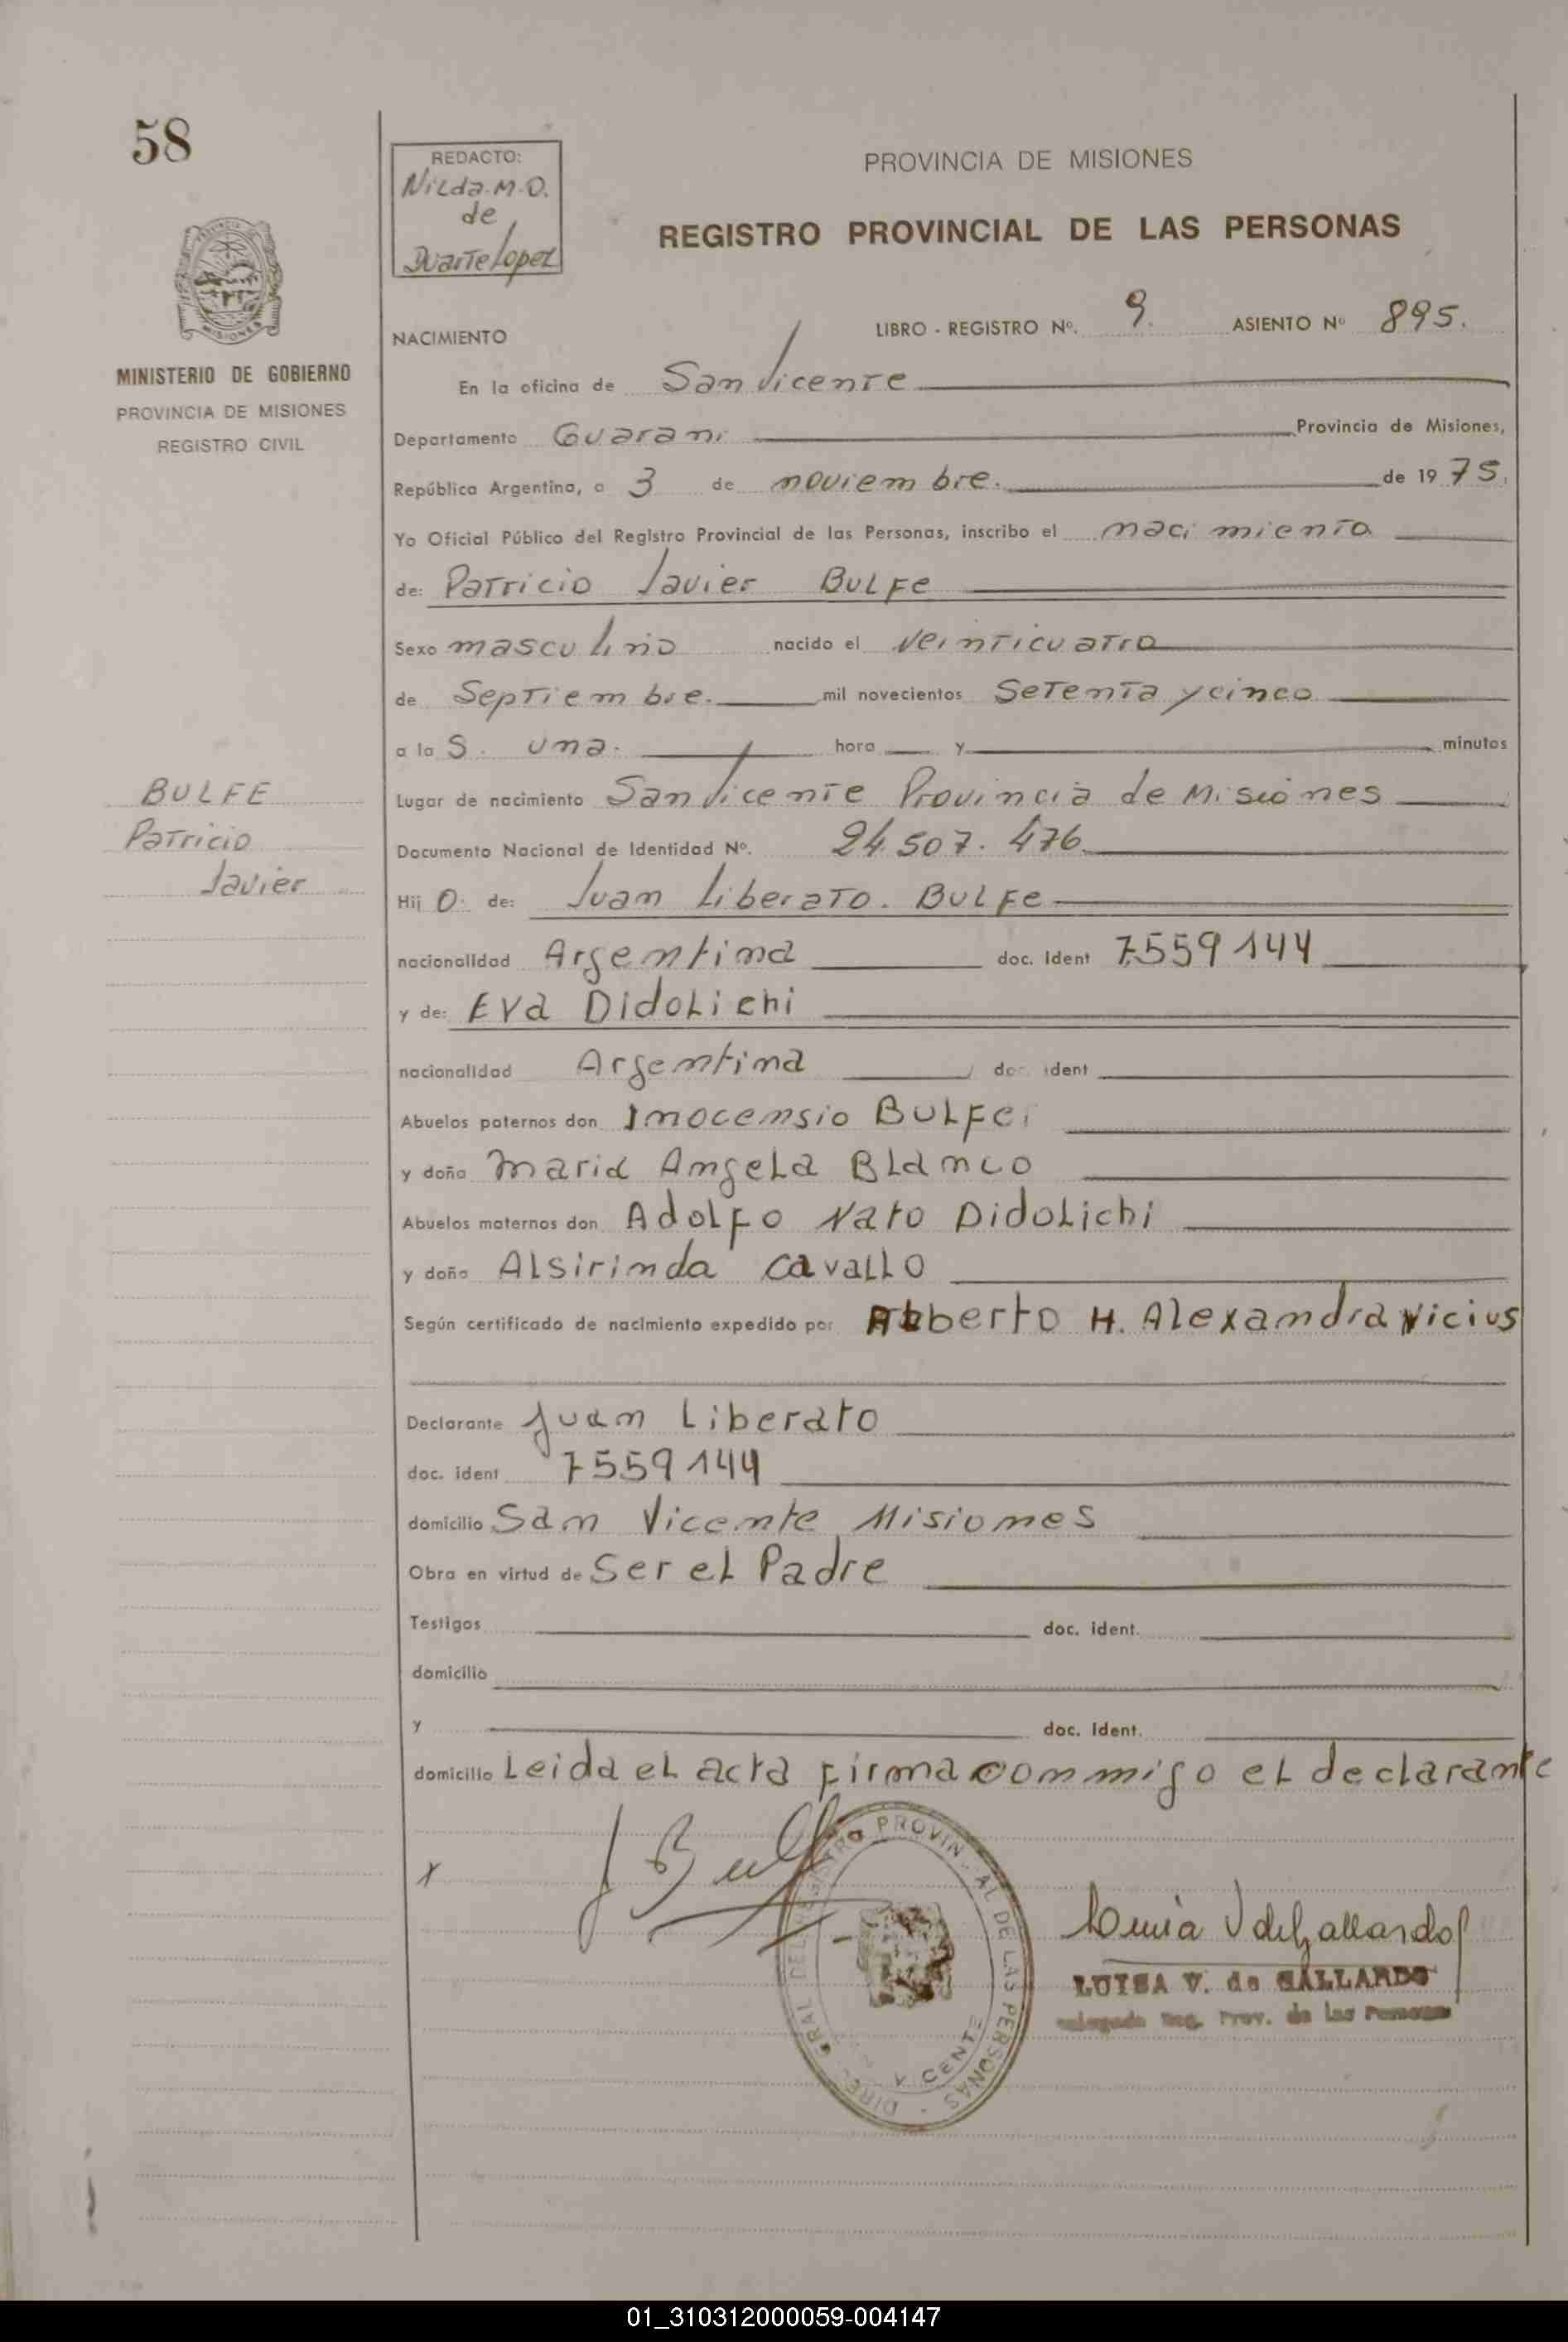 58
REDACTO:
Nilda M.O.
de
Duarte Lopez
PROVINCIA DE MISIONES
REGISTRO PROVINCIAL DE LAS PERSONAS
MISIONES
MINISTERIO DE GOBIERNO
PROVINCIA DE MISIONES
REGISTRO CIVIL
NACIMIENTO
LIBRO - REGISTRO Nº. 9. ASIENTO Nº 895.
En la oficina de San Vicente
Departamento Guarani Provincia de Misiones,
República Argentina, a 3 de noviembre. de 1975.
Yo Oficial Público del Registro Provincial de las Personas, inscribo el nacimiento
de: Patricio Javier BULFe
Sexo masculino nacido el veinticuatro
de Septiembre. mil novecientos Setenta y cinco
a la S. una. hora y minutos
BULFE
Patricio
Javier
Lugar de nacimiento San Vicente Provincia de Misiones
Documento Nacional de Identidad Nº. 24.507.476
Hij O. de: Juan Liberato. BULFe
nacionalidad Argentina doc. Ident 7.559144
y de: Eva Didolichi
nacionalidad Argentina doc. ident
Abuelos paternos don Inocensio BULFe,
y doña Maria Angela Blanco
Abuelos maternos don Adolfo Nato Didolichi
y doña Alsirinda Cavallo
Según certificado de nacimiento expedido por Alberto H. Alexandravicius
Declarante Juan Liberato
doc. ident 7559144
domicilio San Vicente Misiones
Obra en virtud de Ser el Padre
Testigos doc. ident.
domicilio
y doc. Ident.
domicilio Leida el acta firma conmigo el declarante
X J Bulf
DEL REGISTRO PROVIN AL DE LAS PERSONAS
VICENTE
Luisa V de Gallardo
LUISA V. de GALLARDO
Delegada Reg. Prov. de las Personas
01_310312000059-004147